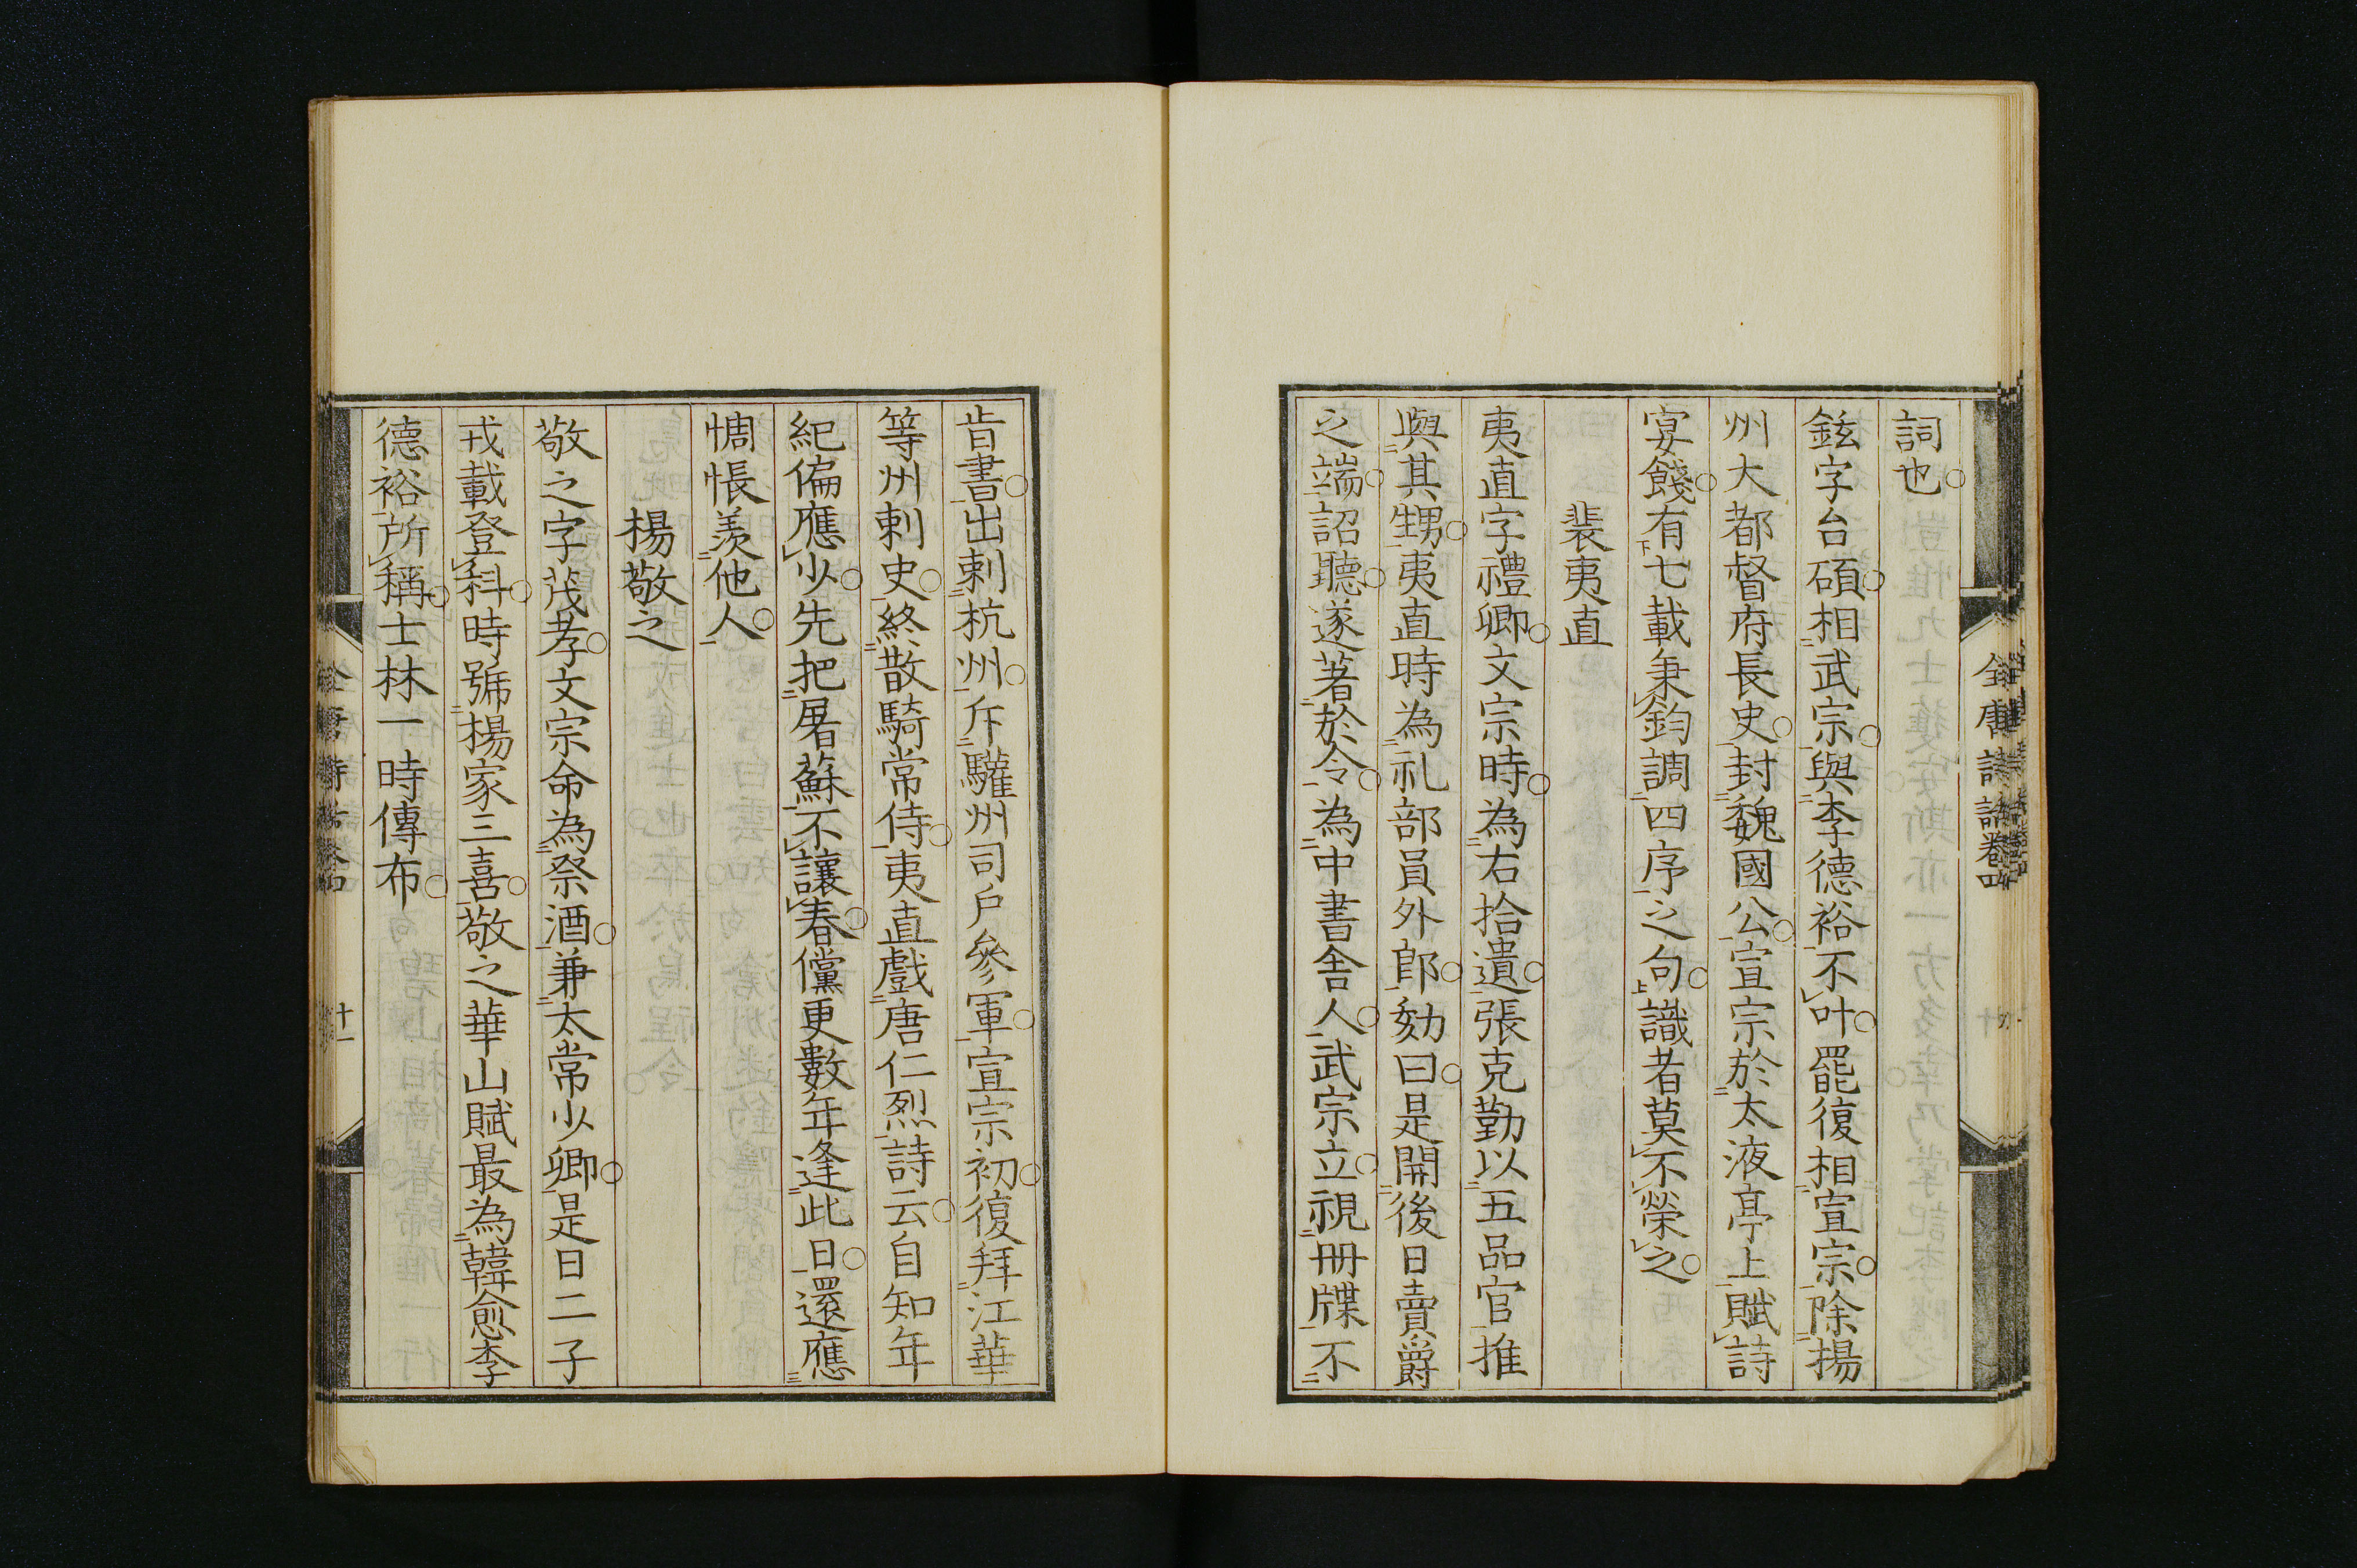 詞也
鉉字台碩相武宗與李德裕不叶罷復相宣宗除揚
州大都督府長史封魏國公宣宗於太液亭上賦詩
宴餞有七載秉鈞調四序之句識者莫不榮之
裴夷直
夷直字禮卿文宗時為右拾遺張克勤以五品官推
與其甥夷直時為礼部員外郎劾曰是開後日賣爵
之端詔聽遂著於令為中書舍人武宗立視冊牒不
肯書出刺杭州斥驩州司戶參軍宣宗初復拜江華
等州刺史終散騎常侍夷直戲唐仁烈詩云自知年
紀偏應少先把屠蘇不讓春儻更數年逢此日還應
惆悵羨他人
楊敬之
敬之字茂孝文宗命為祭酒兼太常少卿是日二子
戎載登科時號楊家三喜敬之華山賦最為韓愈李
德裕所稱士林一時傳布